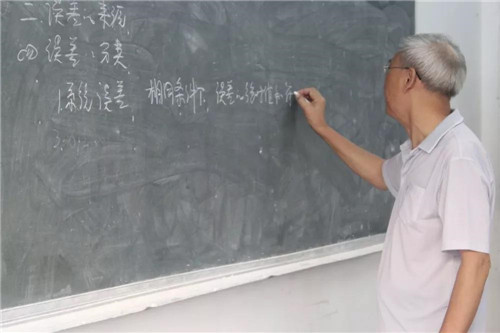 二、误差的来源
(四) 误差的分类
1.系统误差, 相同条件下, 误差的绝对值和符